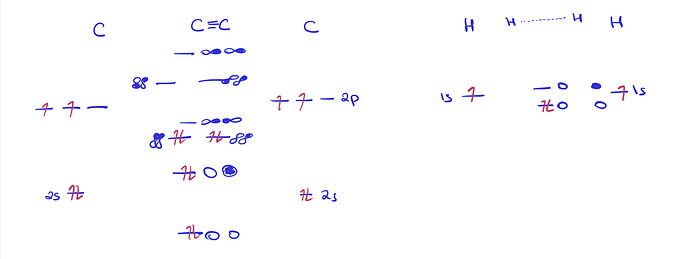 C C≡C C H H H H
2p
1s 1s
2s 2s